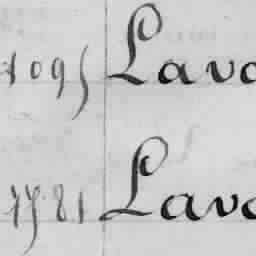 1095 Lava
1781 Lava